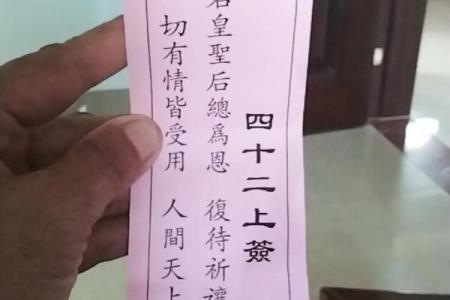 四十二上簽
皇聖后總爲恩 復待祈禳
切有情皆受用 人間天上